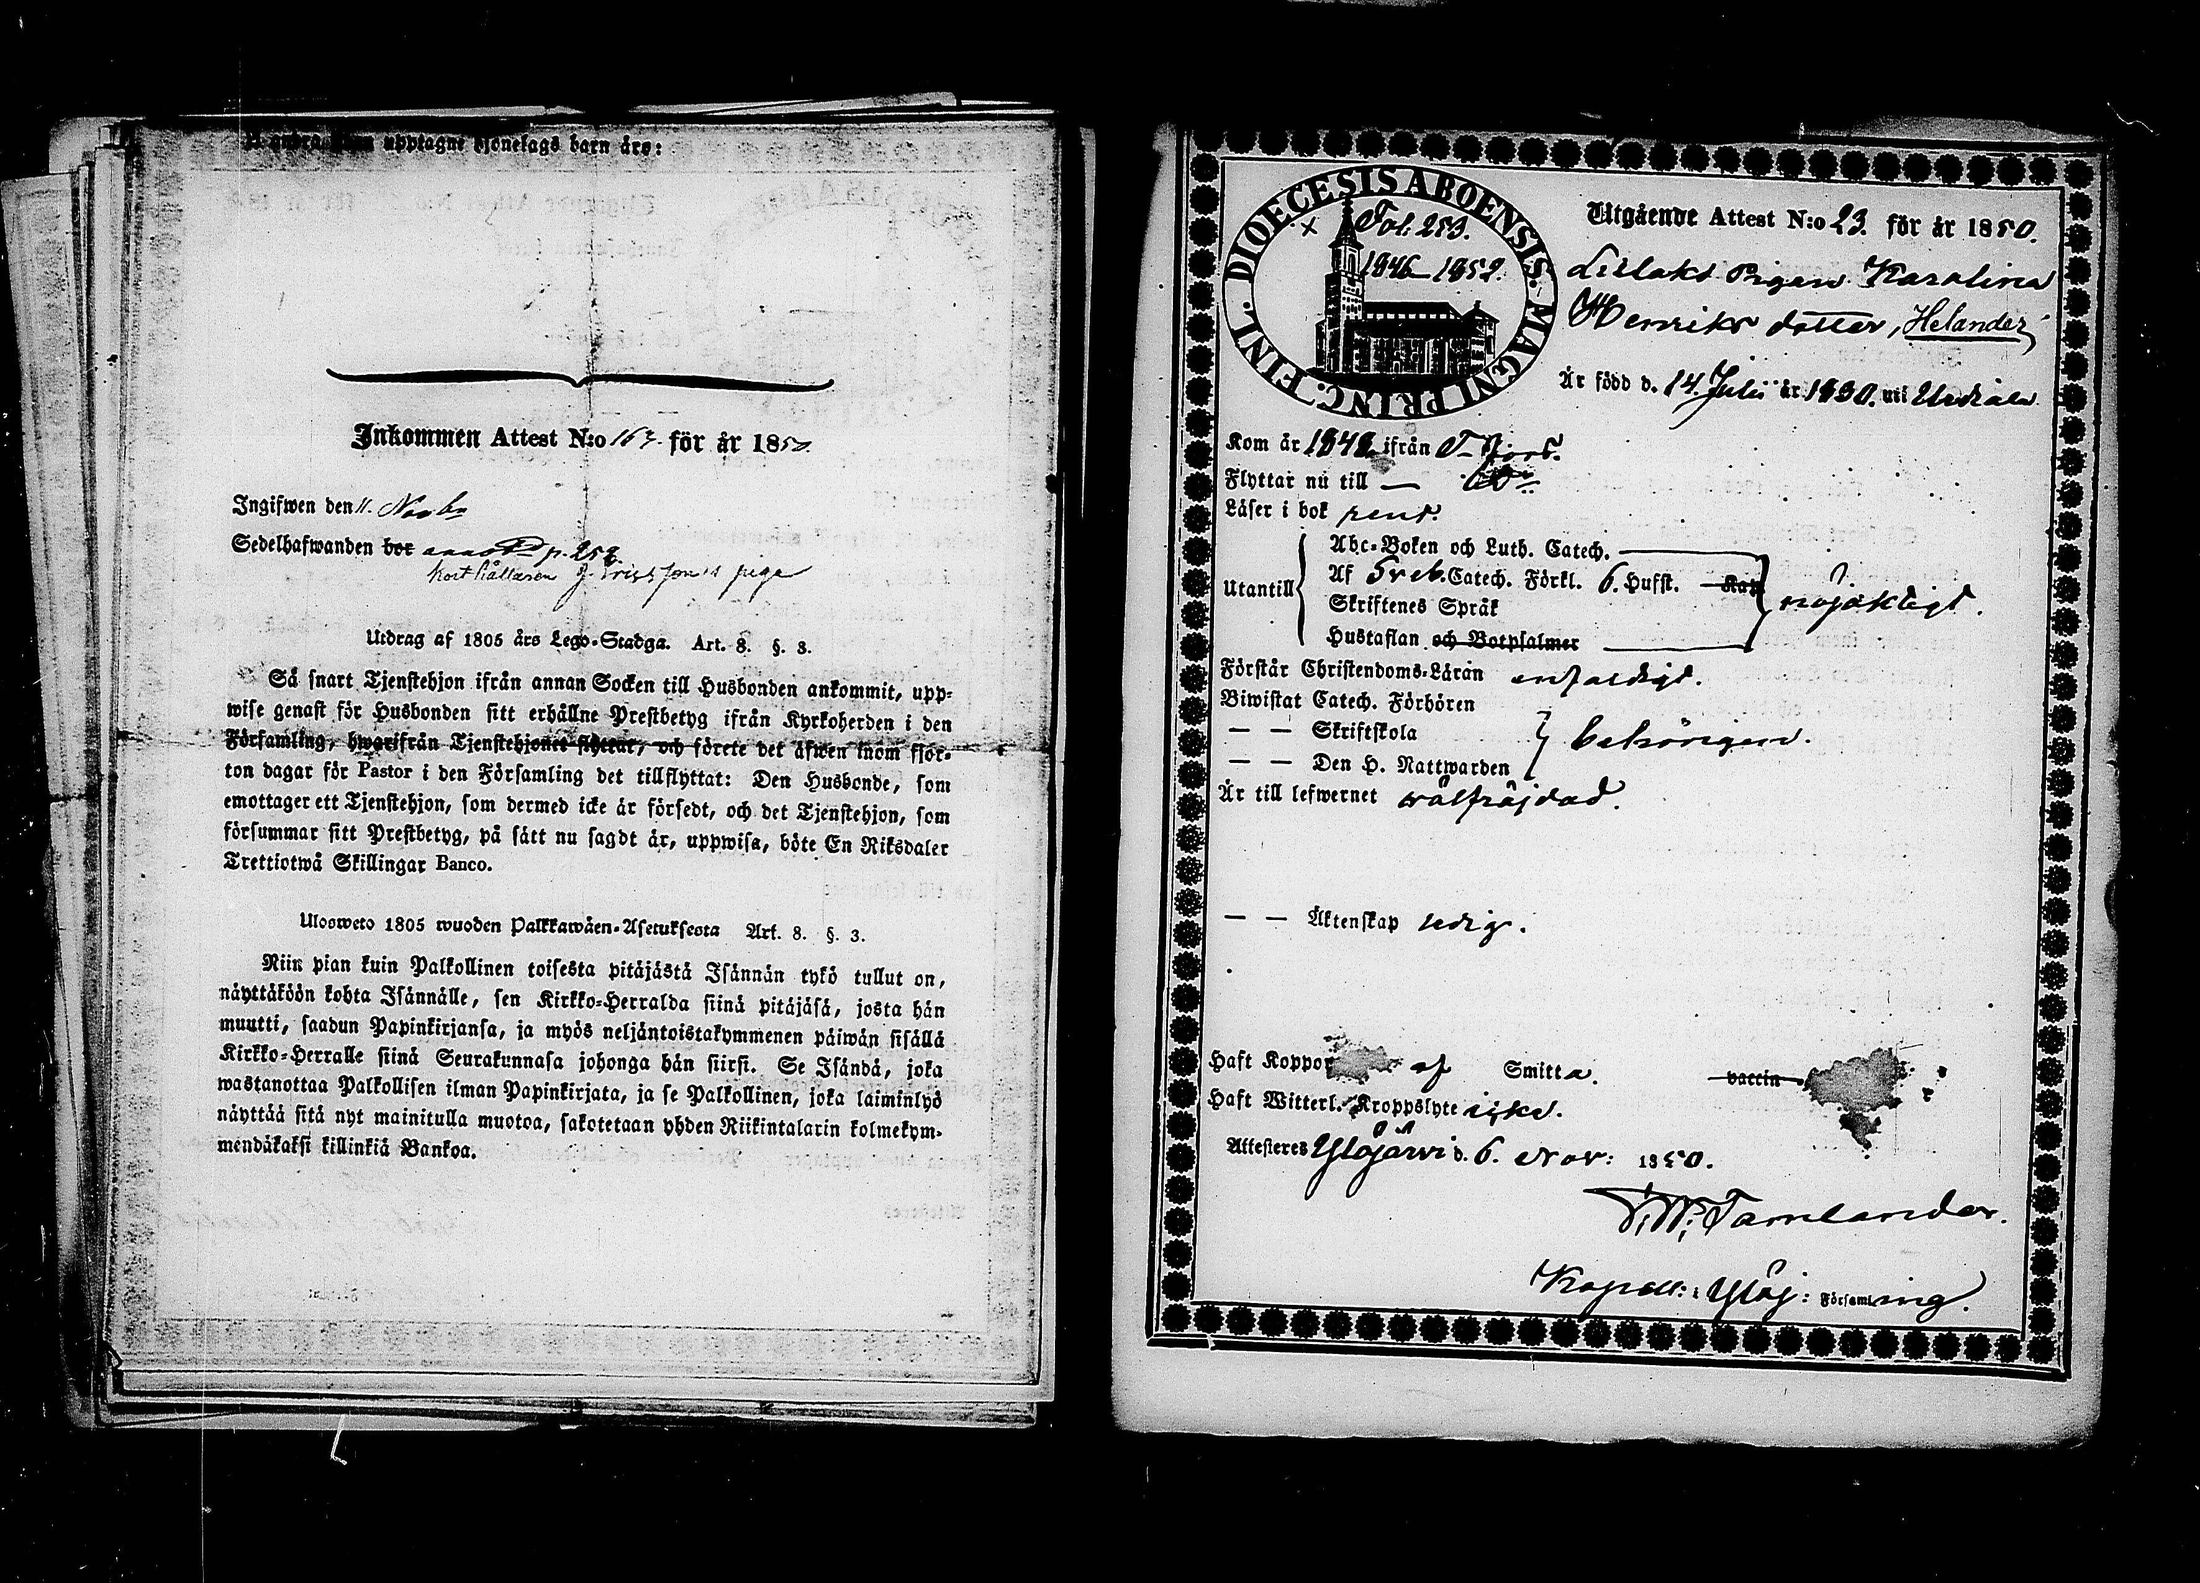 upptagne tjenelags barn äro:
Inkommen Attest N:o 163. för år 1850.
Ingifwen den 11. Novbr
Sedelhafwanden bor annot. p. 252.
J. Erikssons piga
Utdrag af 1805 års Lego-Stadga. Art. 8. §. 3.
Så snart Tjenstehjon ifrån annan Socken till Husbonden ankommit, upp-
wise genast för Husbonden sitt erhållne Prestbetyg ifrån Kyrkoherden i den
Församling, hwarifrån Tjenstehjonet flyttat, och förete det äfwen inom fjor-
ton dagar för Pastor i den Församling det tillflyttat: Den Husbonde, som
emottager ett Tjenstehjon, som dermed icke är försedt, och det Tjenstehjon, som
försummar sitt Prestbetyg, på sätt nu sagdt är, uppwisa, böte En Riksdaler
Trettiotwå Skillingar Banco.
Ulosweto 1805 wuoden Palkkawäen-Asetuksesta Art. 8. §. 3.
Niin pian kuin Palkollinen toisesta pitäjästä Isännän tykö tullut on,
näyttäköön kohta Isännälle, sen Kirkko-Herralda siinä pitäjäsä, josta hän
muutti, saadun Papinkirjansa, ja myös neljäntoistakymmenen päiwän sisällä
Kirkko-Herralle siinä Seurakunnasa johonga hän siirsi. Se Isändä, joka
wastanottaa Palkollisen ilman Papinkirjata, ja se Palkollinen, joka laiminlyö
näyttää sitä nyt mainitulla muotoa, sakotetaan yhden Riikintalarin kolmekym-
mendäkaksi killinkiä Bankoa.
DIOECESIS ABOENSIS. MAGNI PRINC. FINL.
× Fol. 253.
1846–1852.
Utgående Attest N:o 23. för år 1850.
Pigan Karolina
Henriks dotter, Helander
Är född d. 14 Julii år 1830. uti Urdiala
Kom år 1848. ifrån T-fors.
Flyttar nu till —
Läser i bok rent.
Utantill
Abc-Boken och Luth. Catech.
Af Sveb. Catech. Förkl. 6. Hufst. Kap
Skriftenes Språk
Hustaflan och Botpsalmer
nöjaktigt.
Förstår Christendoms-Läran enfaldigt.
Biwistat Catech. Förhören
— — Skriftskola
— — Den H. Nattwarden
behörigen.
Är till lefwernet wälfräjdad.
— — Äktenskap ledig.
Haft Koppor af Smitta. vaccin
Haft Witterl. Kroppslyte icke.
Attesteres Ylöjärvi d. 6. Nov: 1850.
Tamlander.
Kapell: i Ylöj: Församling.